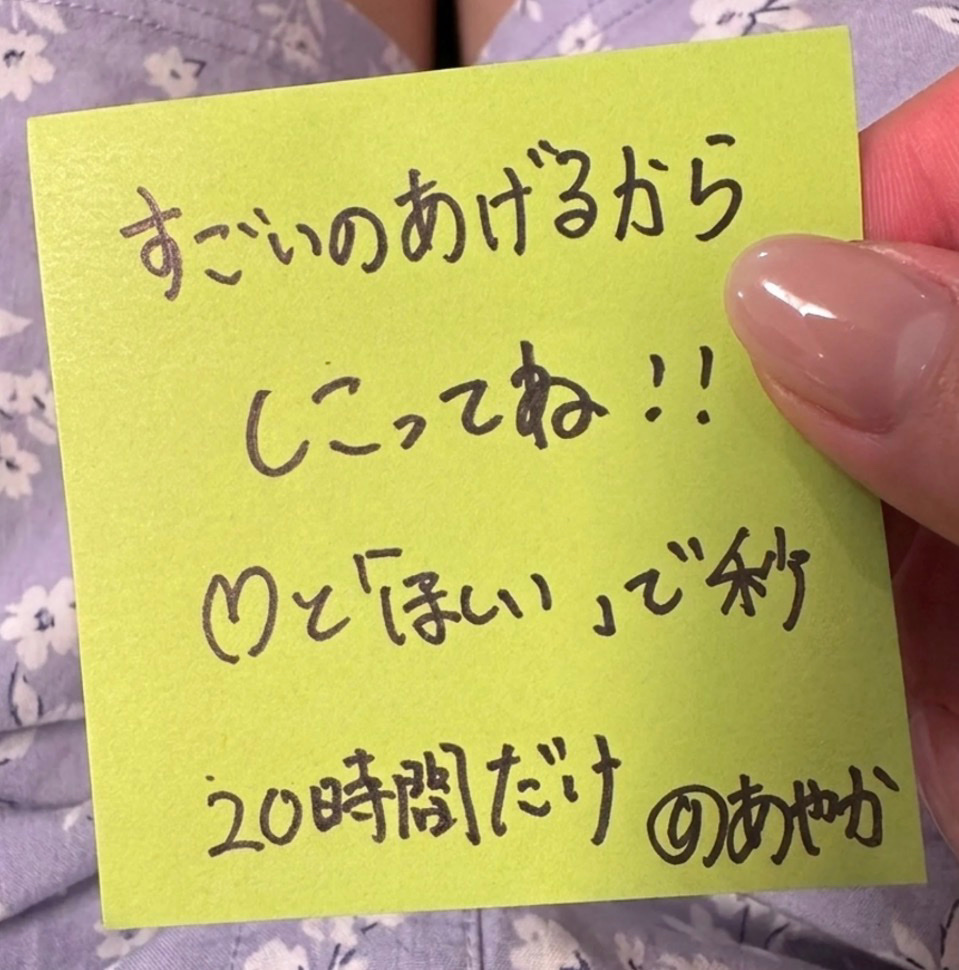 すごいのあげるから
しこってね!!
♡と「ほしい」で秒
20時間だけ のあやか